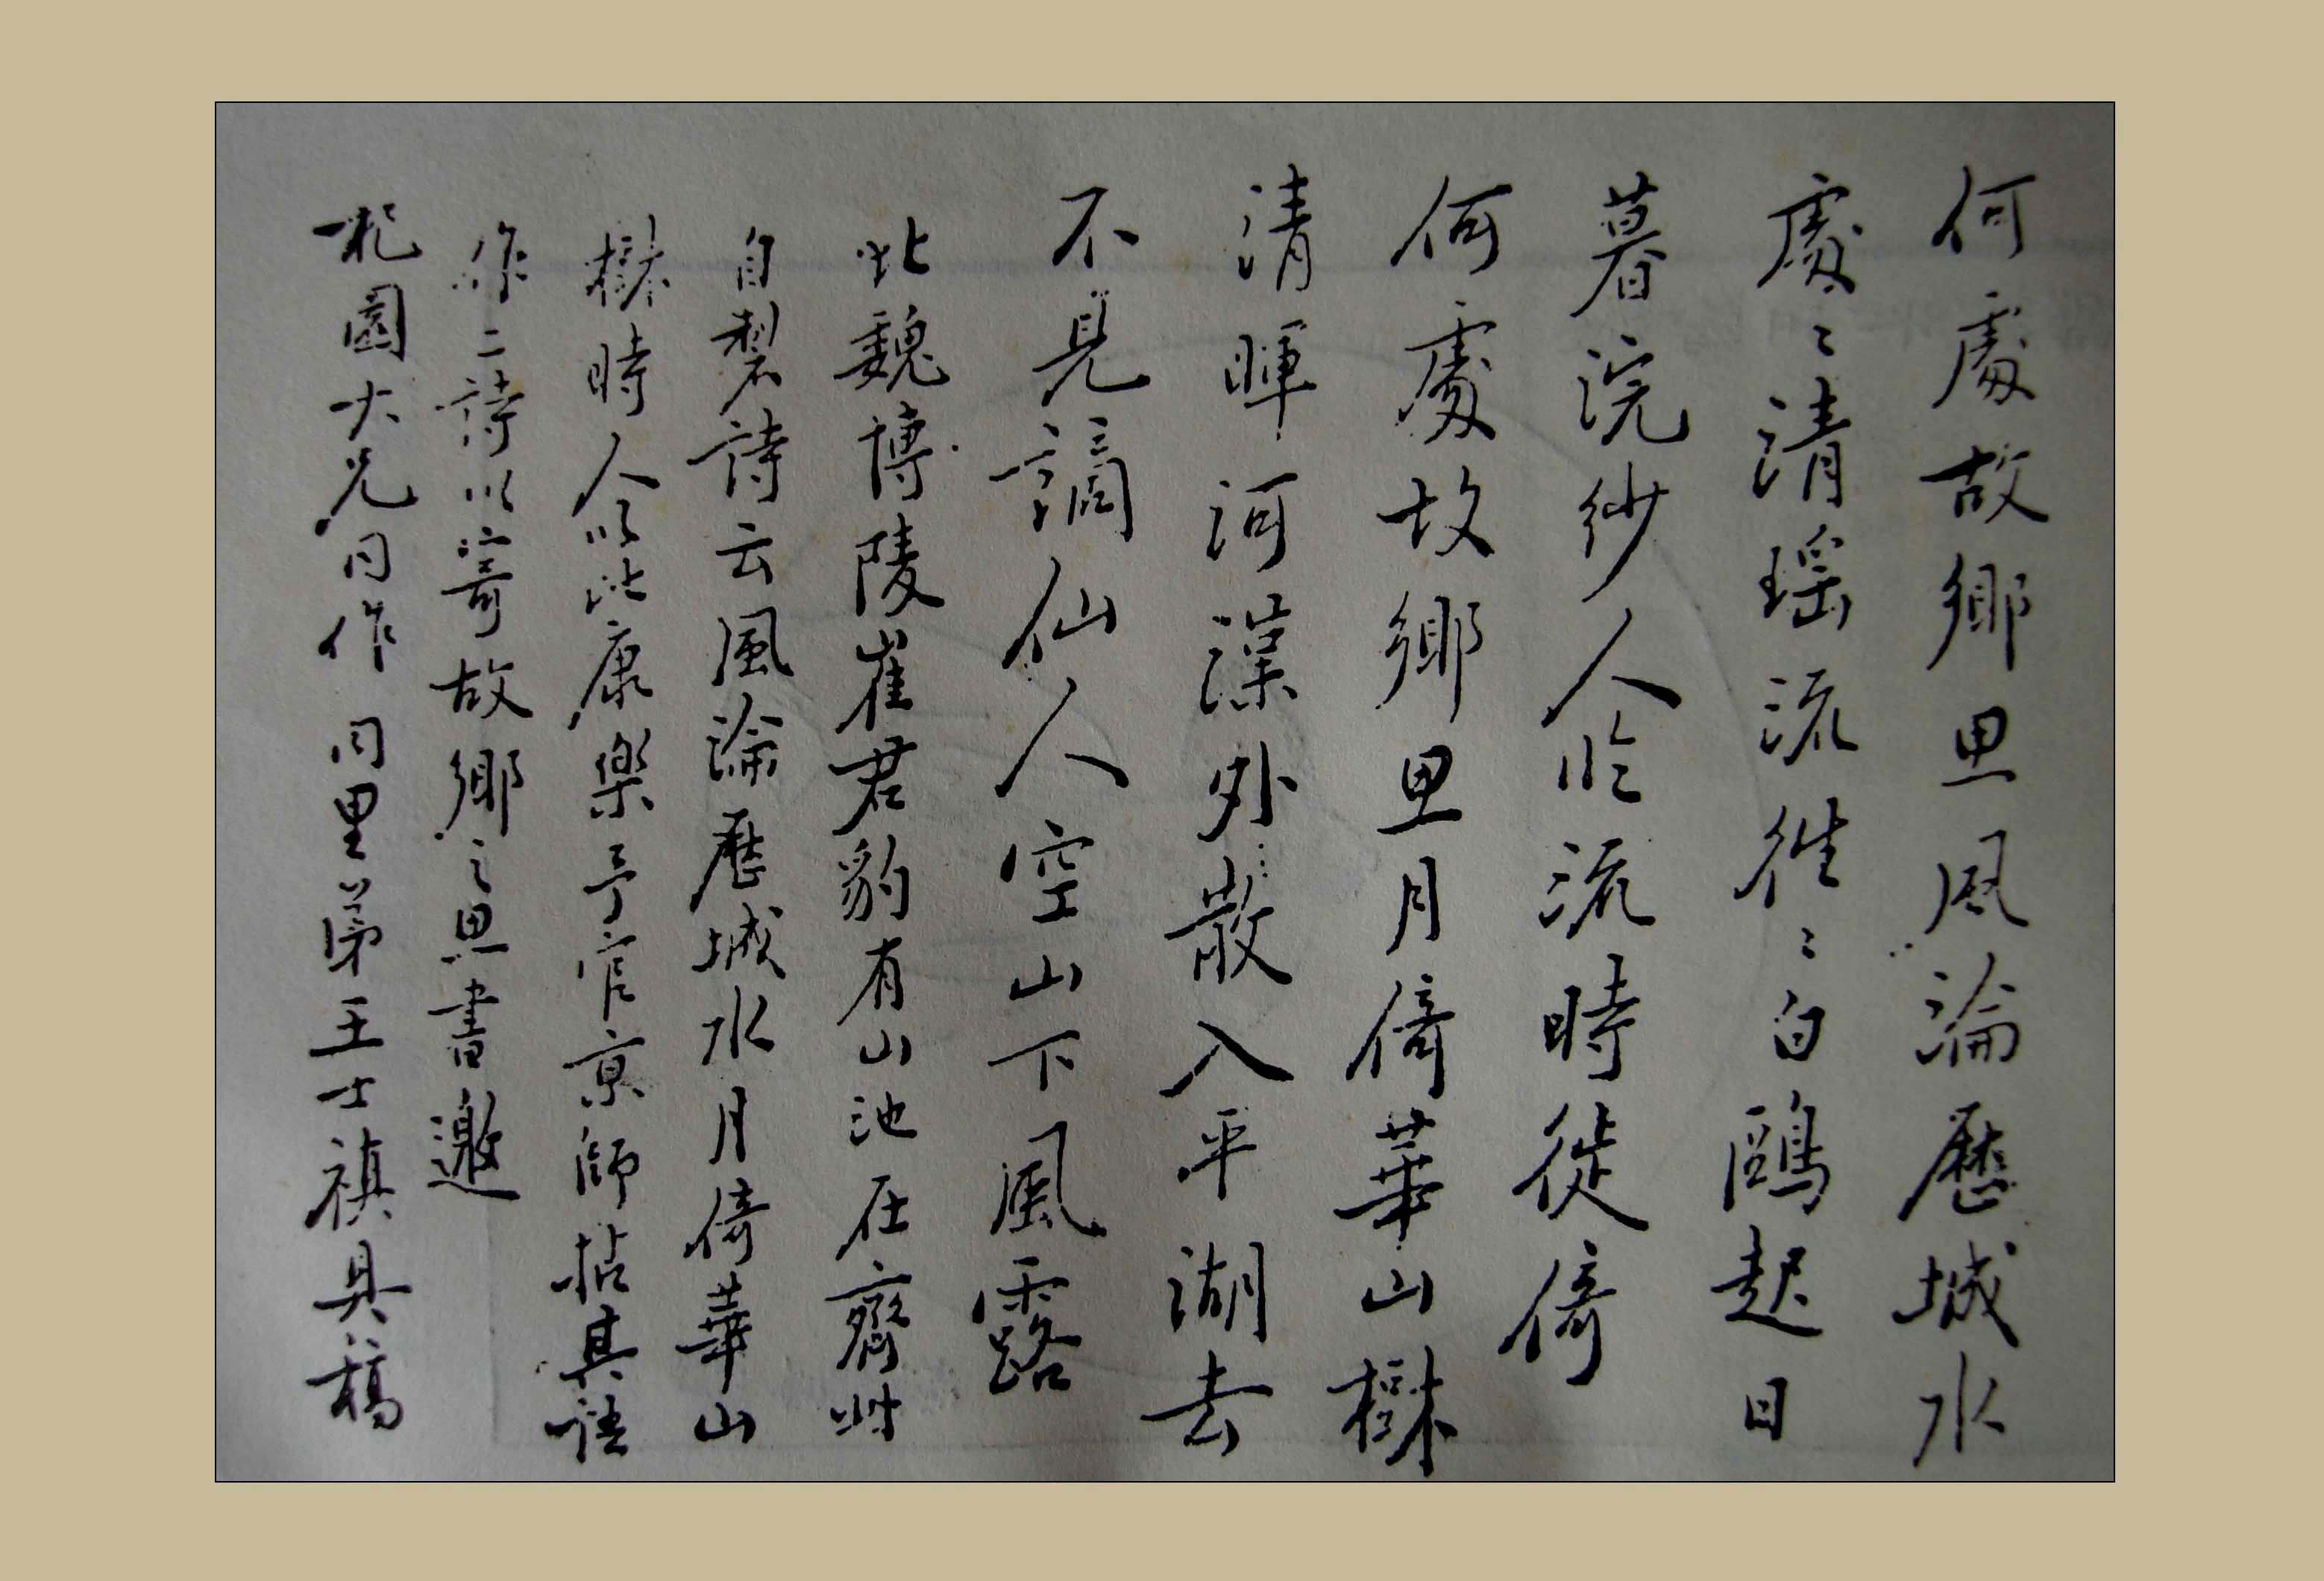 何處故鄉思風淪歷城水
處〻清瑤流往〻白鷗起日
暮浣紗人臨流時徙倚
何處故鄉思月倚華山樹
清暉河漢外散入平湖去
不見謫仙人空山下風露
北魏博陵崔君豹有山池在齊州
自製詩云風淪歷城水月倚華山
樹時人以比康樂予官京師拈其語
作二詩以寄故鄉之思書邀
園大兄同作 同里弟王士禛具稿